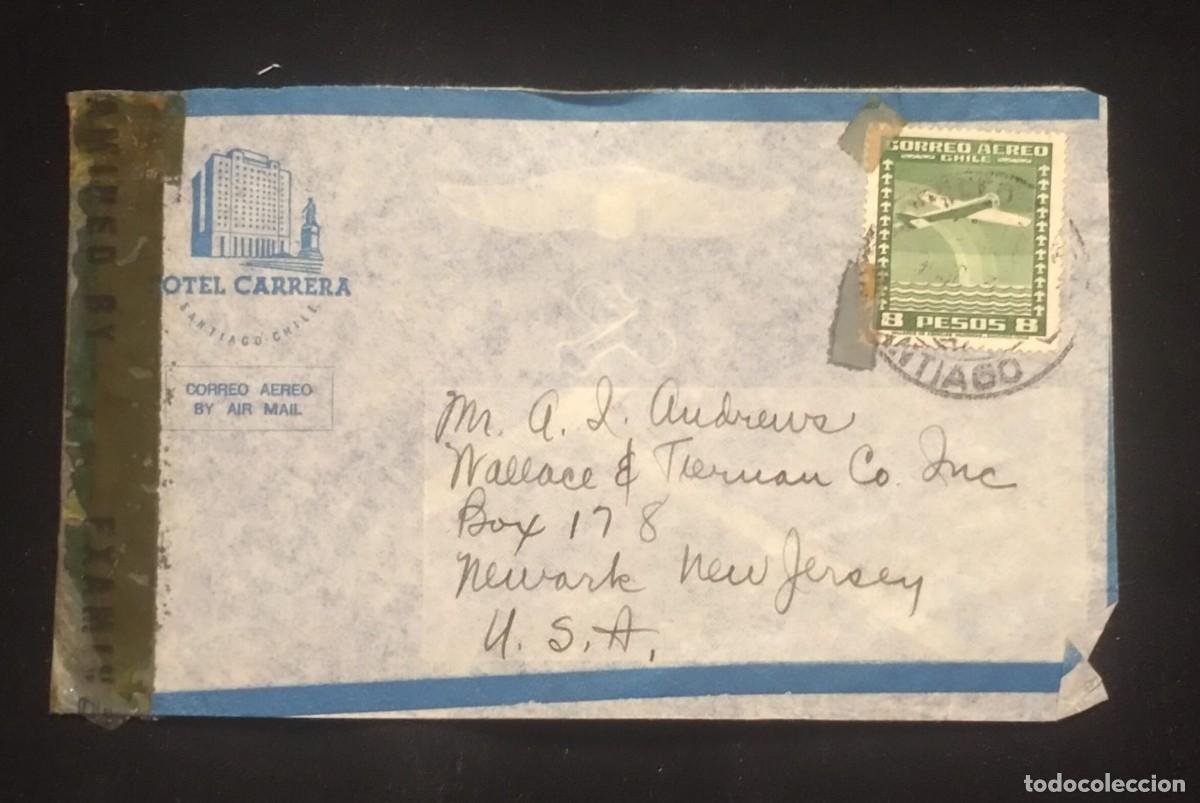 AMINED BY
EXAMIN
HOTEL CARRERA
SANTIAGO-CHILE
CORREO AEREO
BY AIR MAIL
CORREO AEREO
CHILE
8 PESOS 8
NTIAGO
Mr. A. I. Andrews
Wallace & Tiernan Co. Inc
Box 178
Newark New Jersey
U. S. A.
todocoleccion